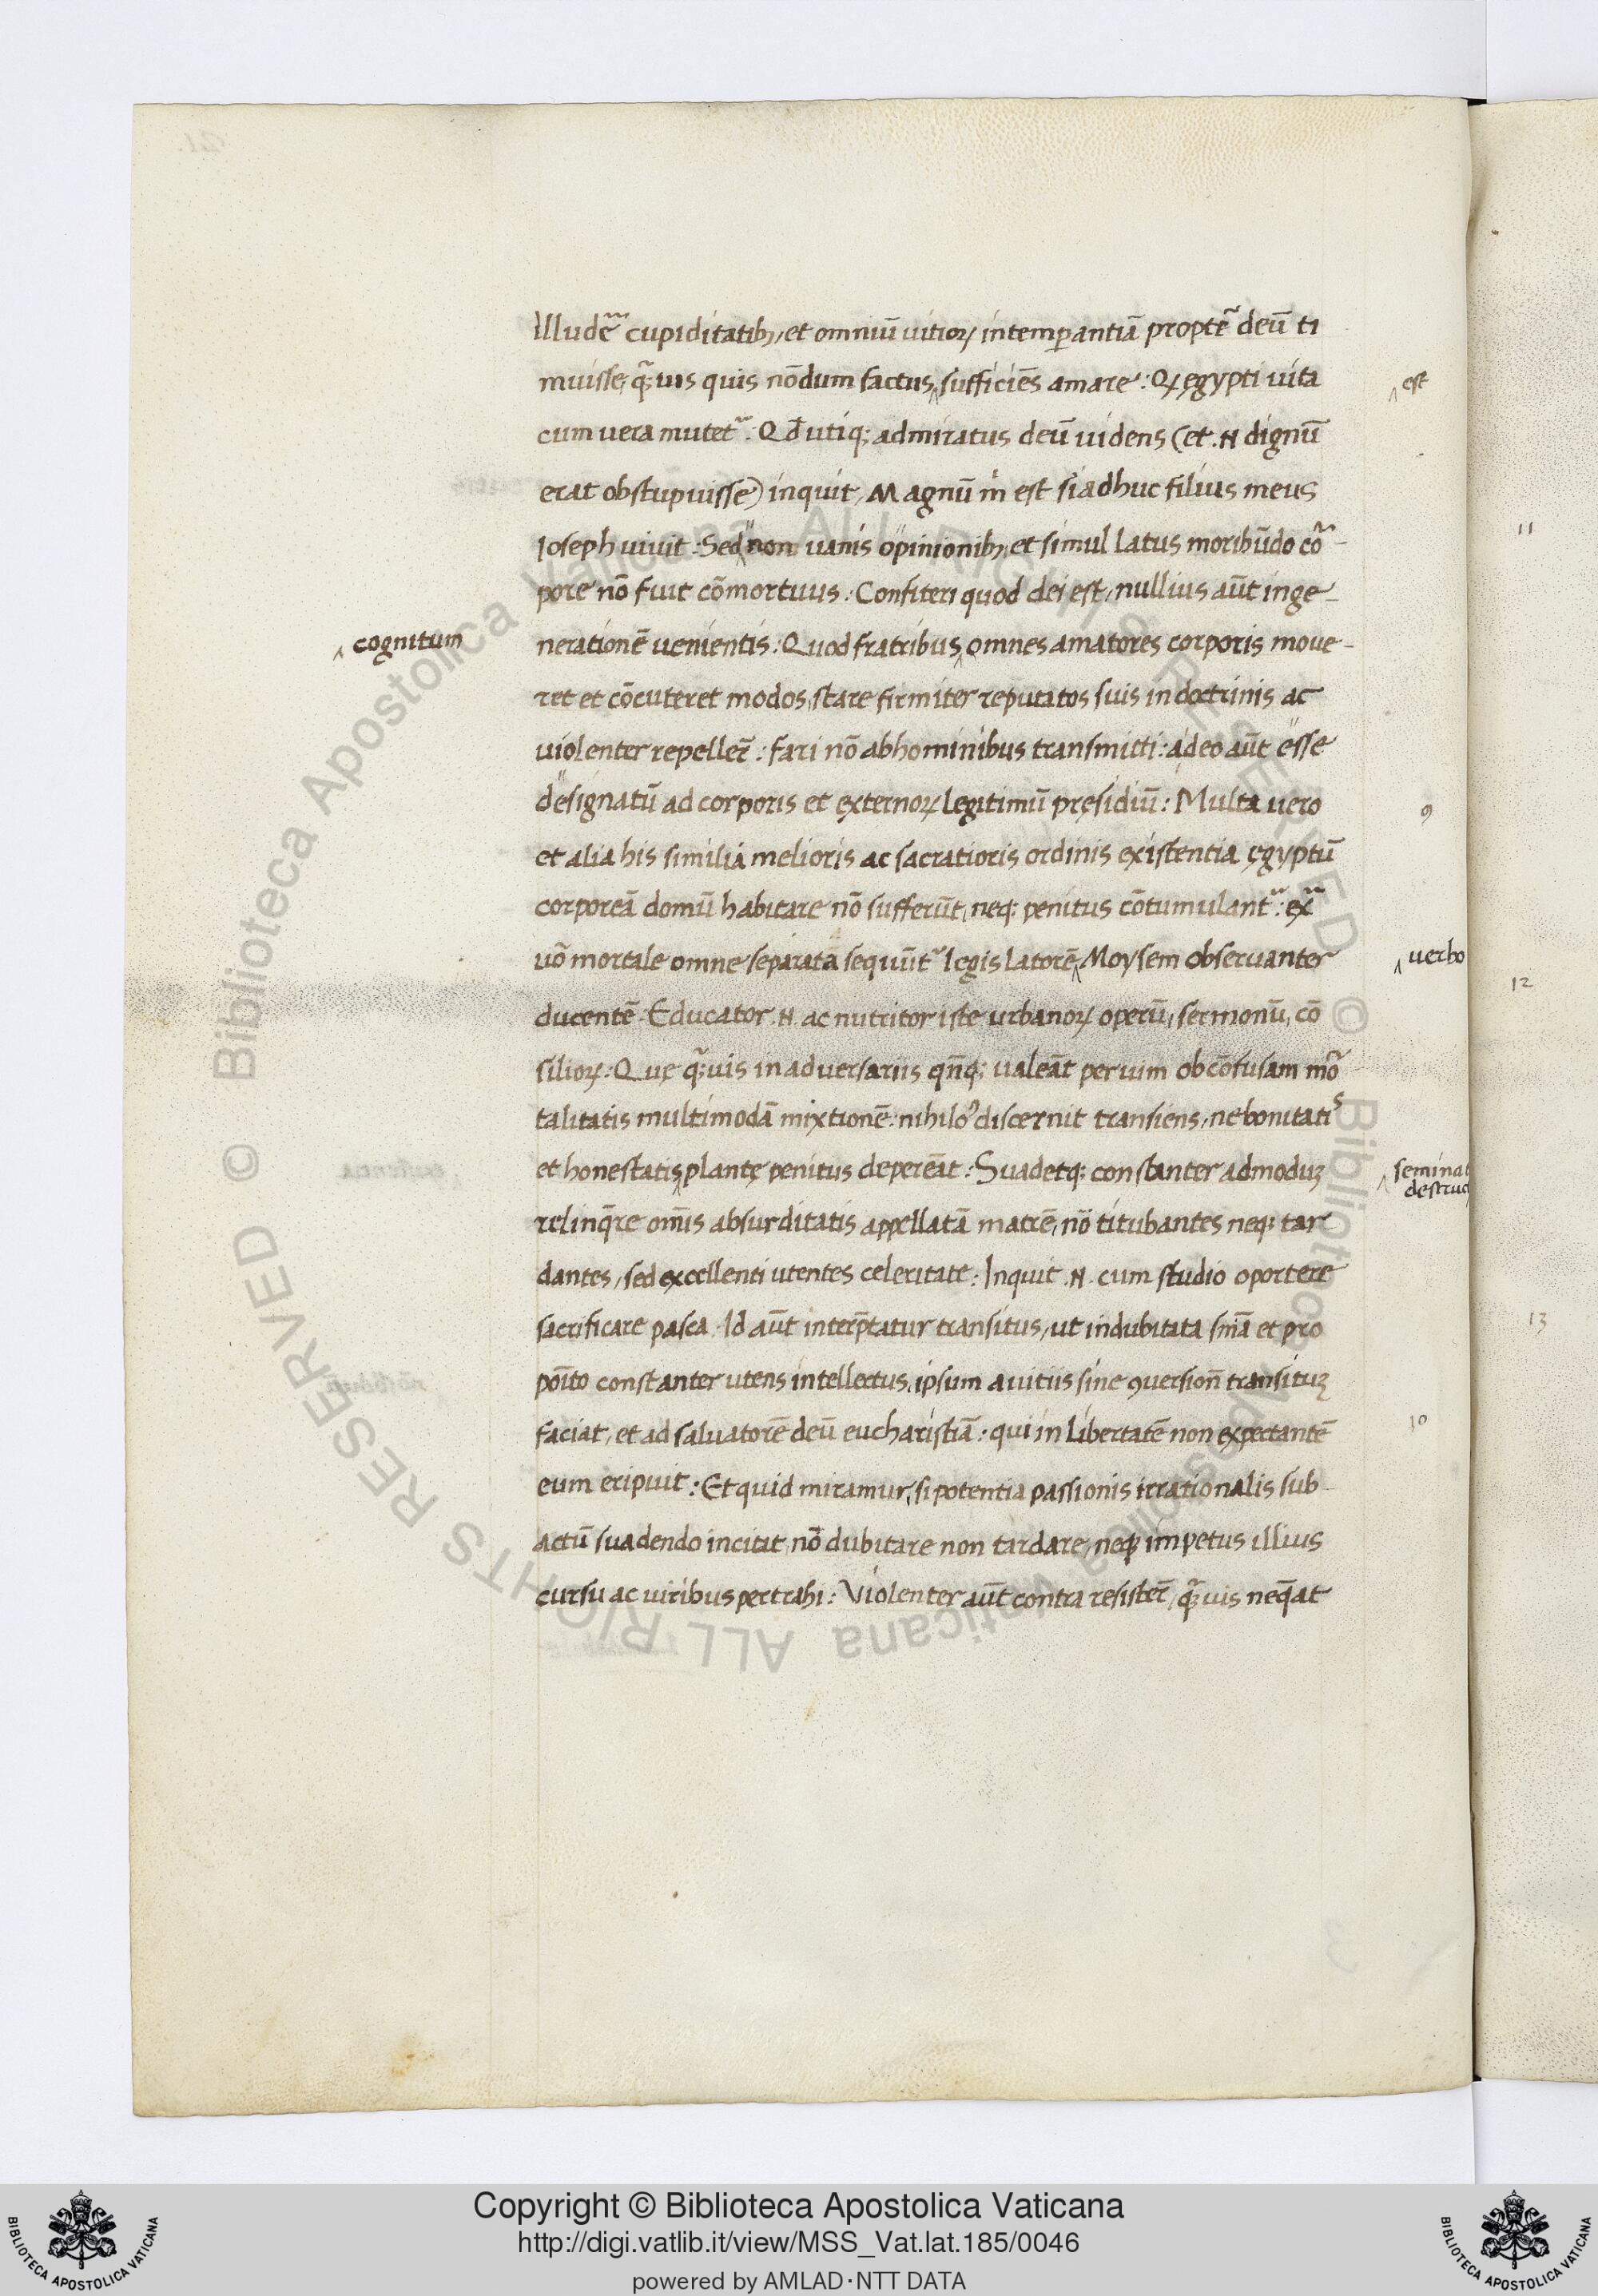 illudẽ cupiditatibꝫ, et omniũ uitioꝝ intemꝑantiã proptẽ deũ ti
muisse, q̃uis quis nõdum factus sufficiẽs amare: Qꝫ ęgypti uita
est
cum uera mutet᷑. Qđ utiqꝫ admiratus deũ uidens (et .N. dignũ
erat obstupuisse) inquit, Magnũ m̃ est si adhuc filius meus
Ioseph uiuit: Sed non uanis opinionibꝫ, et simul latus moribũdo cõ
pore nõ fuit cõmortuus. Confiteri quod dei est, nullius aũt inge
cognitum
nerationẽ uenientis: Quod fratribus omnes amatores corporis moue-
ret et cõcuteret modos, stare firmiter reputatos suis in doctrinis ac
uiolenter repellet᷑: Fari nõ ab hominibus transmitti: adeo aũt esse
designatũ ad corporis et externoꝝ legitimũ pręsidiũ: Multa uero
9
et alia his similia melioris ac sacratioris ordinis existentia ęgyptũ
corporeã domũ habitare nõ sufferũt, neqꝫ penitus cõtumulant᷑: ex᷑
uõ mortale omne separata sequũt᷑ legis latorẽ Moysem obseruanter
verbo
ducentẽ. Educator .N. ac nutritor iste urbanoꝝ operũ, sermonũ, cõ
silioꝝ: Quę q̃uis in aduersariis qñqꝫ ualeãt per uim ob cõfusam mõ
talitatis multimodã mixtionẽ: nihiloꝰ discernit transiens, ne bonitatis
et honestatis plantę penitus depereãt: Suadetqꝫ constanter admoduꝫ
seminat
destruc
relinq̃re om̃is absurditatis appellatã matrẽ, nõ titubantes neqꝫ tar
dantes, sed excellenti utentes celeritate: Inquit .N. cum studio oportere
sacrificare pasca. Id aũt interp̃tatur transitus, ut indubitata sñia et pro
põito constanter utens intellectus, ipsum a uitiis sine ꝯuersioñ transituꝫ
faciat, et ad saluatorẽ deũ eucharistiã: qui in libertatẽ non expectantẽ
10
eum eripuit: Et quid miramur, si potentia passionis irrationalis sub-
actũ suadendo incitat, nõ dubitare non tardare, neqꝫ impetus illius
cursu ac uiribus pertrahi: Violenter aũt contra resister̃, q̃uis neq̃at
11
12
13
Copyright © Biblioteca Apostolica Vaticana
http://digi.vatlib.it/view/MSS_Vat.lat.185/0046
powered by AMLAD·NTT DATA
BIBLIOTECA APOSTOLICA VATICANA
BIBLIOTECA APOSTOLICA VATICANA
© Biblioteca Apostolica Vaticana ALL RIGHTS RESERVED © Biblioteca Apostolica Vaticana ALL RIGHTS RESERVED